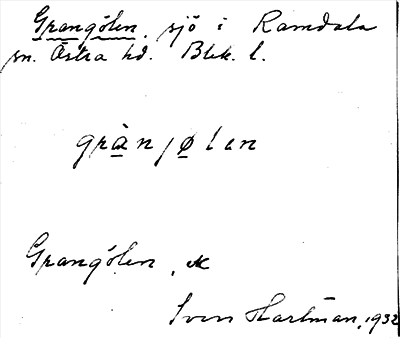 Grangölen, sjö i Ramdala
sn. Östra hd. Blek. l.
grànjø̀len
Grangölen, K
Sven Hartman, 1932